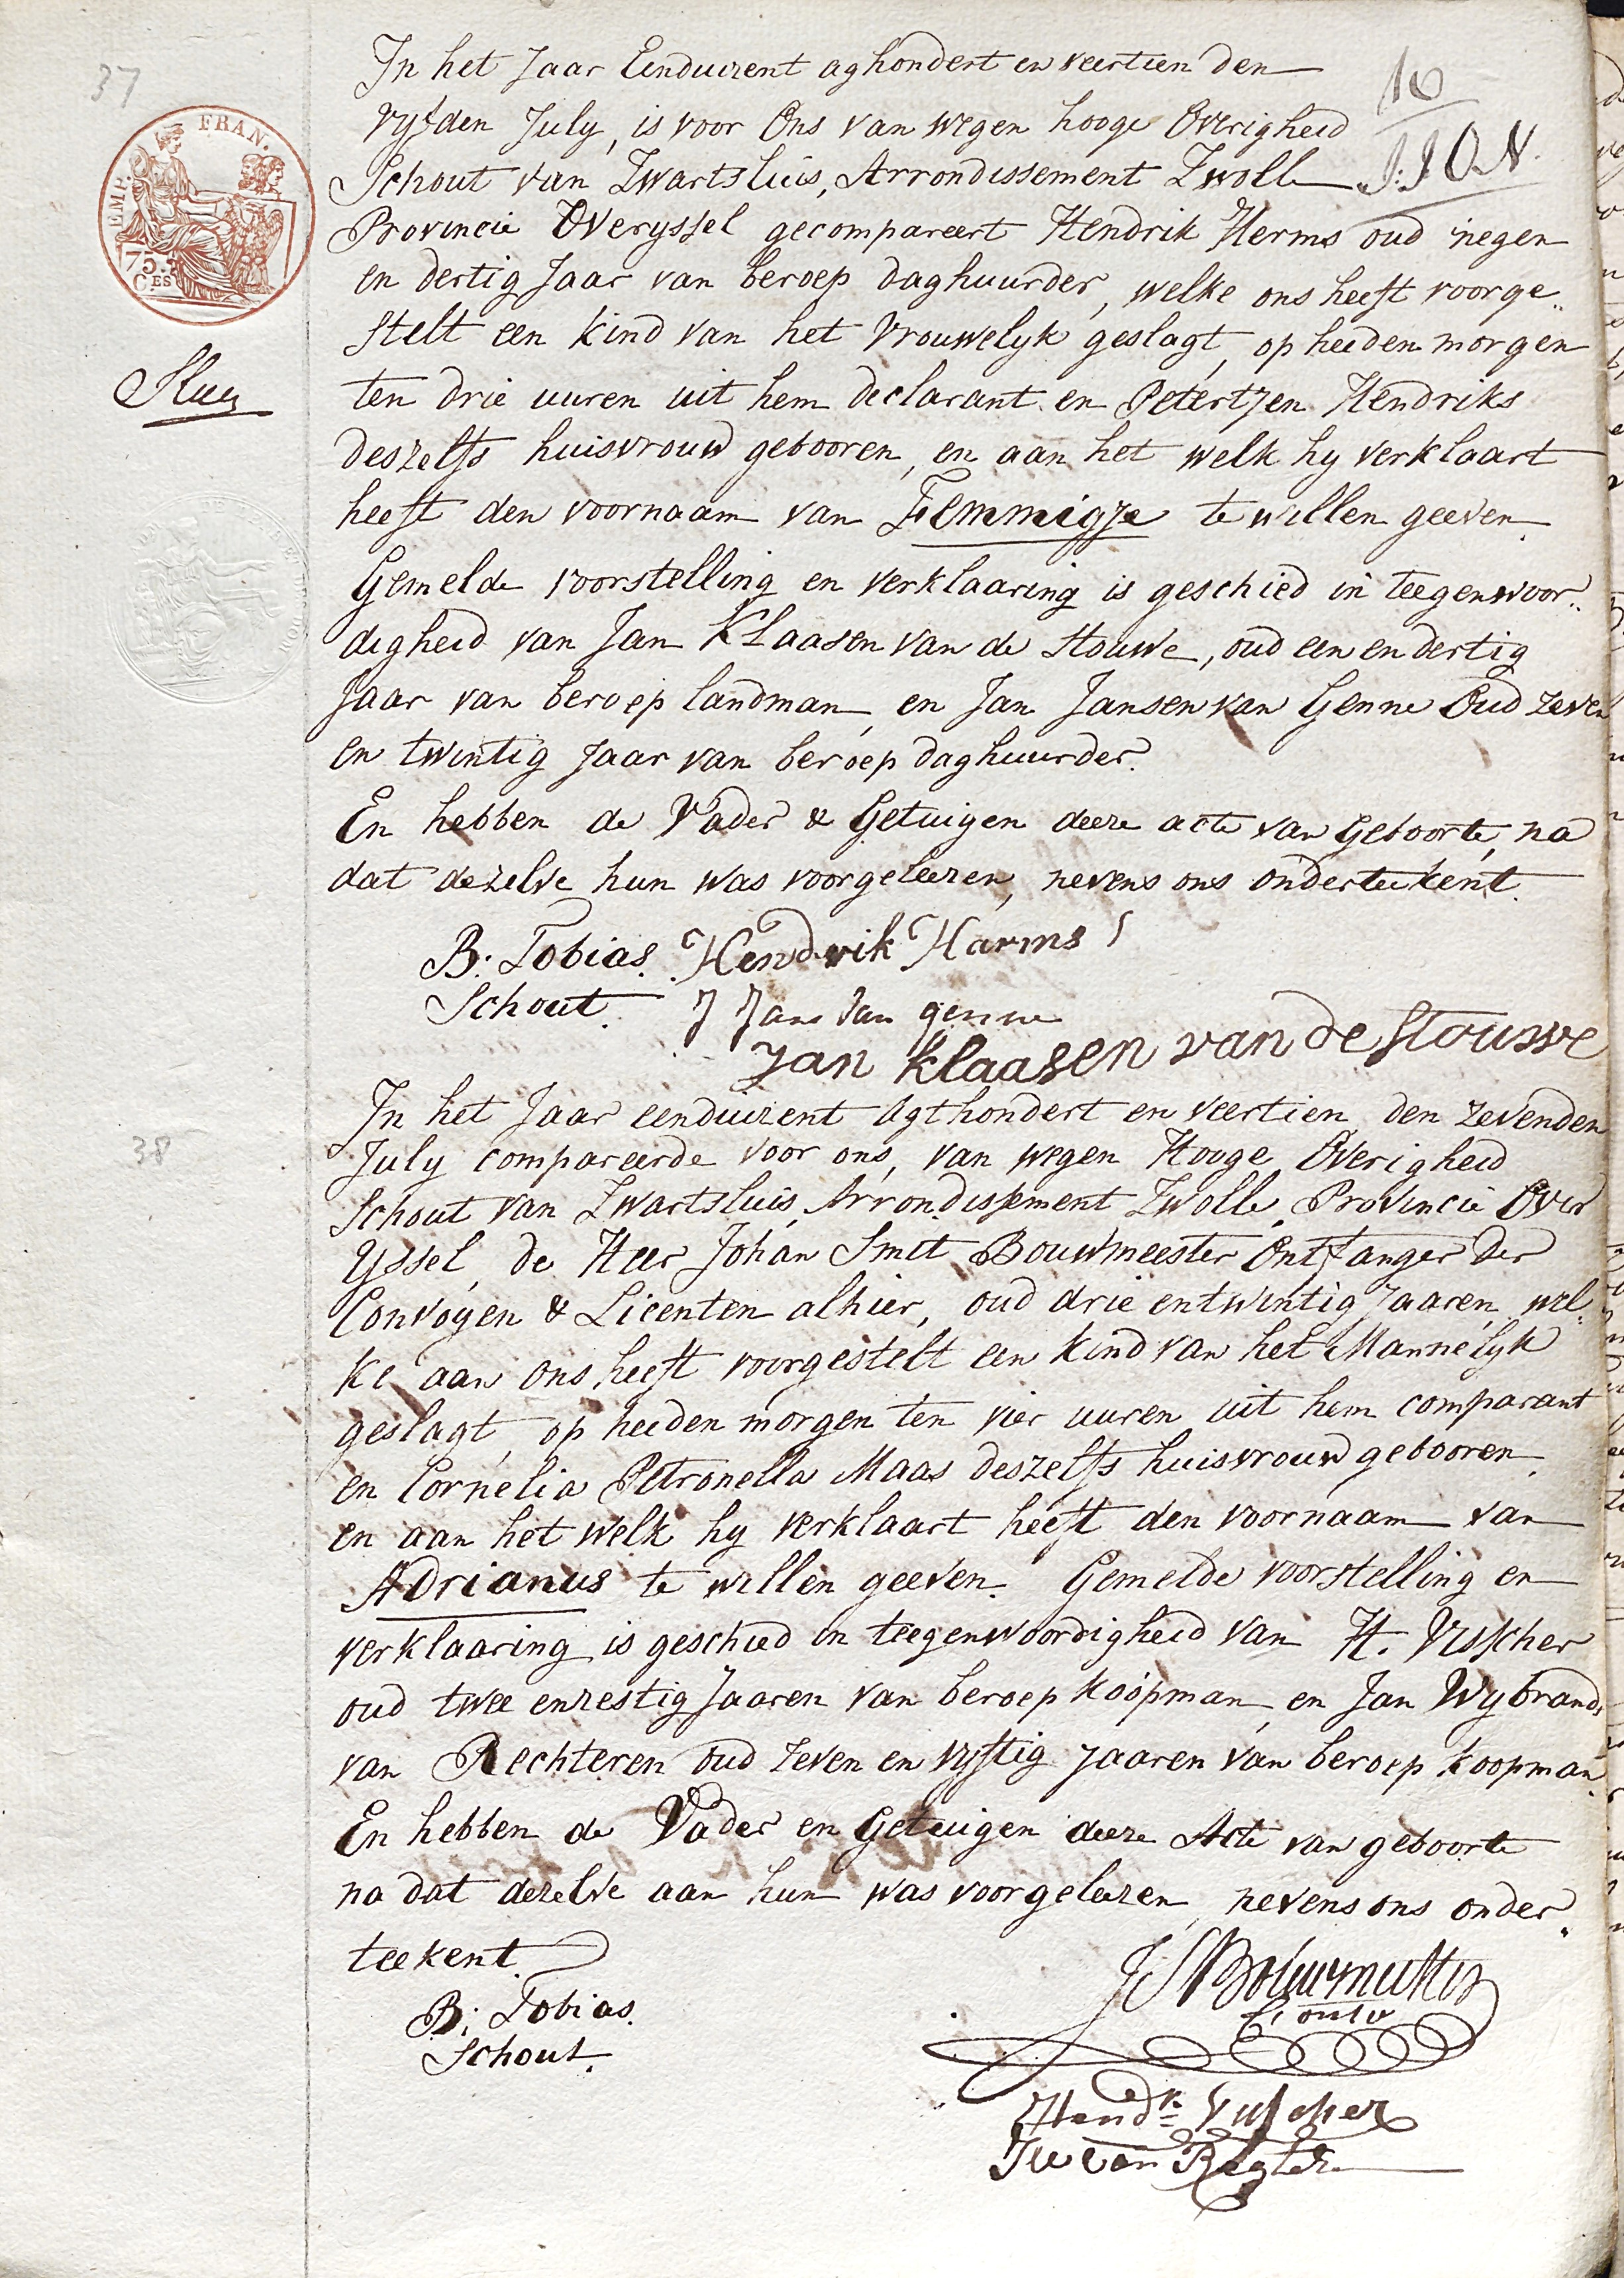 37
10
In het Jaar Eenduizent aghondert en veertien den
vyfden July, is voor Ons van wegen hooge Overigheid
Schout van Zwartsluis, Arrondissement Zwoll
Provincie Overyssel gecompareert Hendrik Herms oud negen
en dertig Jaar van beroep daghuurder, welke ons heeft voorge„
stelt een kind van het Vrouwelyk geslagt, op heeden morgen
ten drie uuren uit hem declarant en Petertjen Hendriks
deszelfs huisvrouw gebooren, en aan het welk hy verklaart
heeft den voornaam van Femmigje te willen geeven.
Gemelde voorstelling en verklaaring is geschied in teegenwoor„
digheid van Jan Klaasen van de Stouwe, oud een en dertig
Jaar van beroep landman, en Jan Jansen van Genne Oud zeven
en twintig Jaar van beroep daghuurder.
En hebben de Vader & Getuigen deeze acte van Geboorte, na
dat dezelve hun was voorgeleezen, nevens ons onderteekent.
B. Tobias. Hendrik Harms
Schout. J Jans van genne
Jan klaasen van de stouwe
FRAN.
EMP.
75.
CES
38
In het Jaar eenduizent Agthondert en veertien den zevenden
July compareerde voor ons, van wegen Hooge Overigheid
Schout van Zwartsluis, Arrondissement Zwolle, Provincie Over
Yssel, de Heer Johan Smit Bouwmeester Ontfanger der
Convoyen & Licenten alhier, oud drie entwintig Jaaren, wel„
ke aan ons heeft voorgestelt een kind van het Mannelyk
geslagt, op heeden morgen ten vier uuren uit hem comparant
en Cornelia Petronella Maas deszelfs huisvrouw gebooren,
en aan het welk hy verklaart heeft den voornaam van
Adrianus te willen geeven. Gemelde voorstelling en
verklaaring is geschied in teegenwoordigheid van H. Visscher
oud twee enzestig Jaaren van beroep koopman, en Jan Wybrands
van Rechteren oud zeven en vyftig jaaren van beroep koopman.
En hebben de Vader en Getuigen deeze Acte van geboorte
na dat dezelve aan hun was voorgeleezen, nevens ons onder„
teekent.
B. Tobias.
Schout.
J S Bouwmeester
Hendk. Visscher